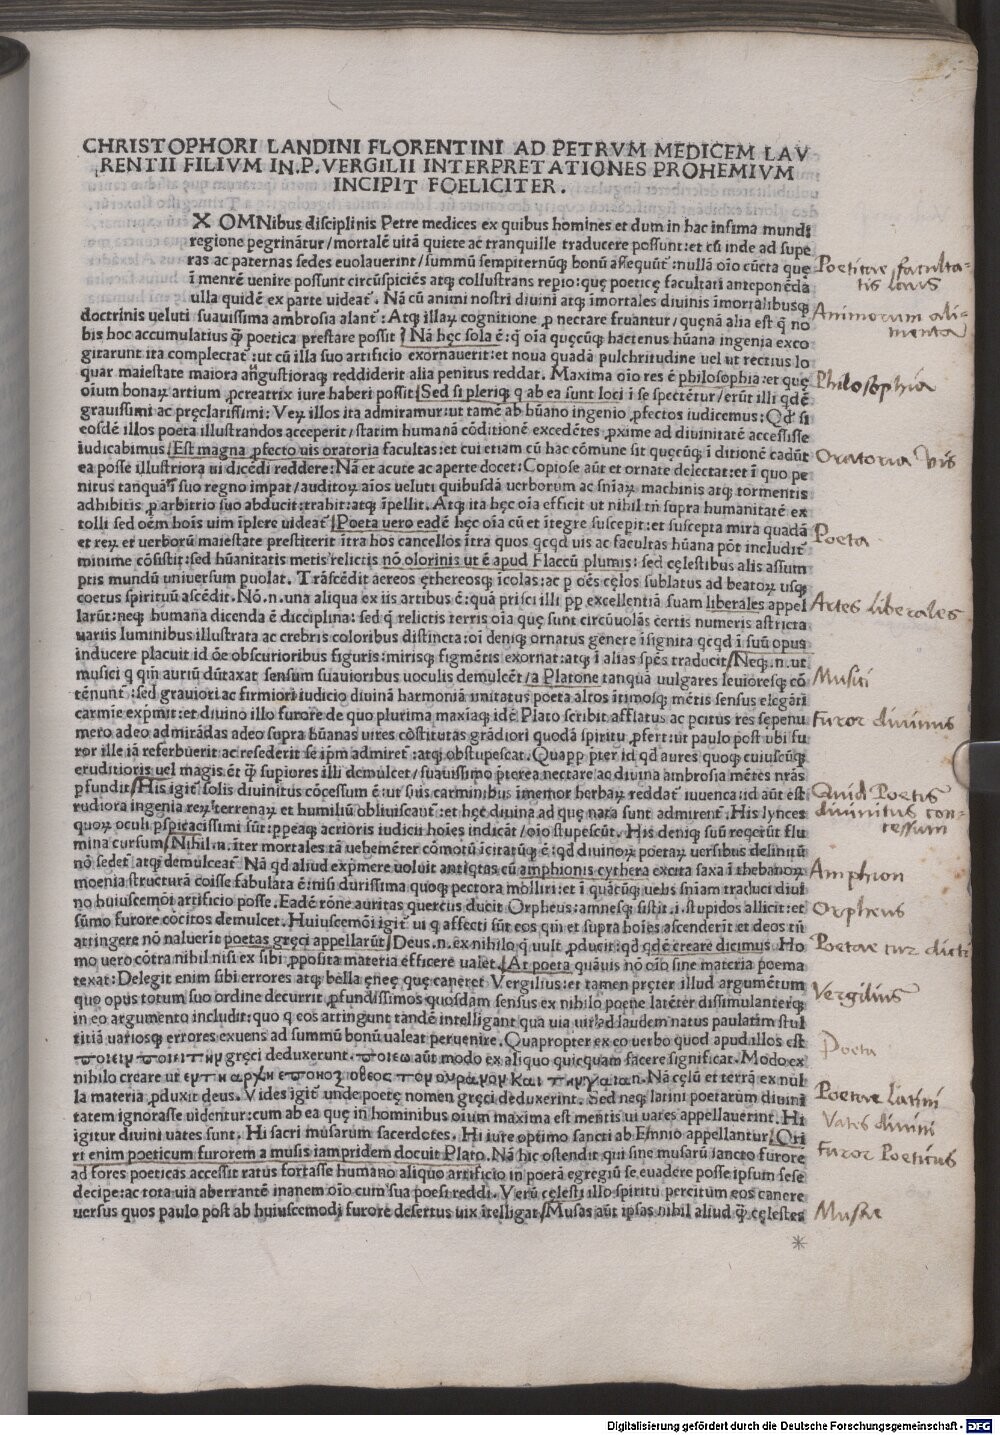 CHRISTOPHORI LANDINI FLORENTINI AD PETRVM MEDICEM LAV
RENTII FILIVM IN.P.VERGILII INTERPRETATIONES PROHEMIVM
INCIPIT FOELICITER.
X OMNibus disciplinis Petre medices ex quibus homines et dum in hac infima mundi
regione pegrinãtur/mortalẽ uitã quiete ac tranquille traducere possunt:et cũ inde ad supe
ras ac paternas sedes euolauerint/summũ sempiternũqꝫ bonũ assequũt᷑:nullã oĩo cũcta quę
ĩ mentẽ uenire possunt circũspiciẽs atqꝫ collustrans repio:quę poeticę facultati anteponẽda
ulla quidẽ ex parte uideat᷑. Nã cũ animi nostri diuini atqꝫ ĩmortales diuinis ĩmortalibusqꝫ
doctrinis ueluti suauissima ambrosia alant᷑:Atqꝫ illaꝝ cognitione ꝓ nectare fruantur/quęnã alia est q̃ no
bis hoc accumulatius q̃ꝫ poetica prestare possit/Nã hęc sola ẽ:q̃ oĩa quęcũqꝫ hactenus hũana ingenia exco
gitarunt ita complectat᷑:ut cũ illa suo artificio exornauerit:et noua quadã pulchritudine uel ut rectius lo
quar maiestate maiora angustioraqꝫ reddiderit alia penitus reddat. Maxima oĩo res ẽ philosophia:et quę
oĩum bonaꝝ artium ꝓcreatrix iure haberi possit/Sed si pleriqꝫ q ab ea sunt loci ĩ se spectẽtur/erũt illi qdẽ
grauissimi ac pręclarissimi: Veꝝ illos ita admiramur:ut tamẽ ab hũano ingenio ꝓfectos iudicemus: Qd᷑ si
eosdẽ illos poeta illustrandos acceperit/statim humanã cõditionẽ excedẽtes ꝓxime ad diuinitatẽ accessisse
iudicabimus/Est magna ꝓfecto uis oratoria facultas:et cui etiam cũ hac cõmune sit quęcũqꝫ ĩ ditionẽ cadũt
ea posse illustriora ui dicẽdi reddere: Nã et acute ac aperte docet: Copiose aũt et ornate delectat:et ĩ quo pe
nitus tanquã ĩ suo regno impat/auditoꝝ aĩos ueluti quibusdã uerborum ac sñiaꝝ machinis atqꝫ tormentis
adhibitis ꝓ arbitrio suo abducit:trahit:atqꝫ ĩpellit. Atqꝫ ita hęc oĩa efficit ut nihil tñ supra humanitatẽ ex
tolli sed oẽm hoĩs uim ĩplere uideat᷑/Poeta uero eadẽ hęc oĩa cũ et ĩtegre suscepit:et suscepta mira quadã
et reꝝ et uerborũ maiestate prestiterit ĩtra hos cancellos ĩtra quos qcqd uis ac facultas hũana põt includit᷑
minime cõsistit:sed hũanitatis metis relictis nõ olorinis ut ẽ apud Flaccũ plumis: sed cęlestibus alis assum
ptis mundũ uniuersum puolat. Trãscẽdit aereos ęthereosqꝫ ĩcolas:ac p oẽs cęlos sublatus ad beatoꝝ usqꝫ
coetus spirituũ ascẽdit. Nõ.n.una aliqua ex iis artibus ẽ:quã prisci illi pp excellentiã suam liberales appel
larũt:neqꝫ humana dicenda ẽ discciplina:sed q̃ relictis terris oĩa quę sunt circũuolãs certis numeris astricta
uariis luminibus illustrata ac crebris coloribus distincta:oĩ deniqꝫ ornatus genere ĩsignita qcqd ĩ suũ opus
inducere placuit id õe obscurioribus figuris:mirisqꝫ figmẽtis exornat:atqꝫ ĩ alias spẽs traducit/Neqꝫ.n.ut
musici q qm̃ auriũ dũtaxat sensum suauioribus uoculis demulcẽt/a Platone tanquã uulgares leuioresqꝫ cõ
tẽnunt᷑:sed grauiori ac firmiori iudicio diuinã harmoniã imitatus poeta altos ĩtimosqꝫ mẽtis sensus elegãti
carmĩe exp̃mit:et diuino illo furore de quo plurima maxiaqꝫ idẽ Plato scribit afflatus ac pcitus res sępenu
mero adeo admirãdas adeo supra hũanas uires cõstitutas grãdiori quodã spiritu ꝓfert:ut paulo post ubi fu
ror ille iã referbuerit ac resederit se ip̃m admiret᷑:atqꝫ obstupescat. Quapp pter id qd aures quoqꝫ cuiuscũqꝫ
eruditioris uel magis ẽt q̃ꝫ supiores ĩlli demulcet/suauissimo pterea nectare ac diuina ambrosia mẽtes nrãs
pfundit/His igit᷑ solis diuinitus cõcessum ẽ:ut suis carminibus ĩmemor herbaꝝ reddat᷑ iuuenca:id aũt est
rudiora ingenia reꝝ terrenaꝝ et humiliũ obliuiscant᷑:et hęc diuina ad quę nata sunt admirent᷑. His lynces
quoꝝ oculi pspicacissimi sũt:ppeaqꝫ acrioris iudicii hoĩes indicãt/oĩo stupescũt. His deniqꝫ suũ reqẽrũt flu
mina cursum/Nihil.n.ĩter mortales tã uehemẽter cõmotũ ĩcitatũqꝫ ẽ:qd diuinoꝝ poetaꝝ uersibus delinitũ
nõ sedet᷑ atqꝫ demulceat᷑. Nã qd aliud exp̃mere uoluit antiqtas cũ amphionis cythera excita saxa ĩ thebanoꝝ
moenia structurã coisse fabulata ẽ:nisi durissima quoqꝫ pectora molliri:et ĩ quãcũqꝫ uelis sñiam traduci diui
no huiuscemõi artificio posse. Eadẽ rõne auritas quercus ducit Orpheus:amnesqꝫ sistit.i.stupidos allicit:et
sũmo furore cõcitos demulcet. Huiuscemõi igit᷑ ui q affecti sũt eos qm̃ et supra hoĩes ascenderĩt et deos tñ
attingere nõ naluerĩt poetas gręci appellarũt/Deus.n.ex nihilo q̃ uult ꝓducit:qd qdẽ creare dicimus. Ho
mo uero cõtra nihil nisi ex sibi ꝓposita materia efficere ualet/At poeta quãuis nõ oĩo sine materia poema
texat: Delegit enim sibi errores atqꝫ bella ęneę quę caneret Vergilius:et tamen pręter illud argumẽtum
quo opus totum suo ordine decurrit ꝓfundissimos quosdam sensus ex nihilo poene latẽter dissimulanterqꝫ
in eo argumento includit:quo q eos attingunt tandẽ intelligant qua uia uiri ad laudem natus paulatim stul
titiã uariosqꝫ errores exuens ad summũ bonũ ualeat peruenire. Quapropter ex eo uerbo quod apud illos est
ποιειν ποιειτην gręci deduxerunt. ποιεω aũt modo ex aliquo quicquam facere significat. Modo ex
nihilo creare ut εν τη αρχη εποιησ οθεος τον ουρανον και την γαια n. Nã cęlũ et terrã ex nul
la materia ꝓduxit deus. Vides igit᷑ unde poetę nomen gręci deduxerint. Sed neqꝫ latini poetarum diuini
tatem ignorasse uidentur:cum ab ea quę in hominibus oĩum maxima est mentis ui uates appellauerint. Hi
igitur diuini uates sunt. Hi sacri musarum sacerdotes. Hi iure optimo sancti ab Ennio appellantur/Ori
ri enim poeticum furorem a musis iampridem docuit Plato. Nã hic ostendit qui sine musarũ sancto furore
ad fores poeticas accessit ratus fortasse humano aliquo artificio in poetã egregiũ se euadere posse ipsum sese
decipe:ac tota uia aberrantẽ inanem oĩo cum sua poesi reddi. Verũ cęlesti illo spiritu percitum eos canere
uersus quos paulo post ab huiuscemodi furore desertus uix ĩtelligat/Musas aũt ipsas nihil aliud q̃ꝫ cęlestes
*
Poeticae faculta-
tis laus
Animorum ali-
menta
Philosophia
Oratoria Vis
Poeta
Artes liberales
Musici
Furor divinus
Quid Poetis
divinitus con-
cessum
Amphion
Orpheus
Poetae cur dicti
Vergilius
Poeta
Poetae Latini
Vates divini
Furor Poeticus
Musae
Digitalisierung gefördert durch die Deutsche Forschungsgemeinschaft - DFG